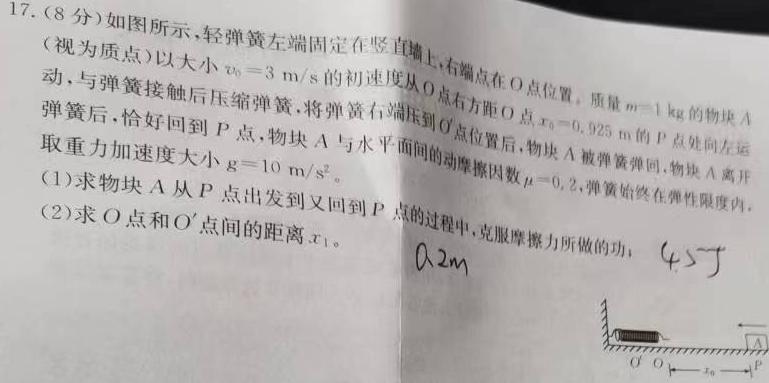 17.(8分)如图所示,轻弹簧左端固定在竖直墙上,右端点在O点位置。质量m=1 kg的物块A
(视为质点)以大小v₀=3 m/s的初速度从O点右方距O点x₀=0.925 m的P点处向左运
动,与弹簧接触后压缩弹簧,将弹簧右端压到O′点位置后,物块A被弹簧弹回,物块A离开
弹簧后,恰好回到P点,物块A与水平面间的动摩擦因数μ=0.2,弹簧始终在弹性限度内,
取重力加速度大小g=10 m/s²。
(1)求物块A从P点出发到又回到P点的过程中,克服摩擦力所做的功; 4.5J
(2)求O点和O′点间的距离x₁。 0.2m
A
O′ O x₀ P